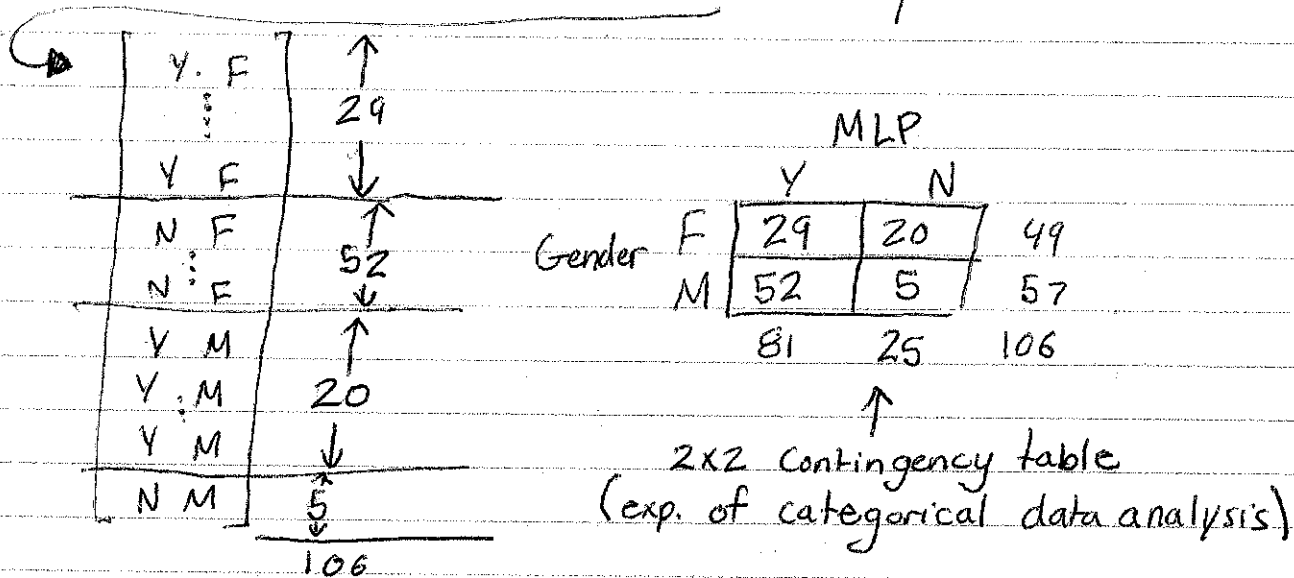 Y. F
29
Y F
N F
52
N F
Y M
Y M
20
Y M
N M
5
106
MLP
Y N
Gender F 29 20 49
M 52 5 57
81 25 106
2x2 Contingency table
(exp. of categorical data analysis)